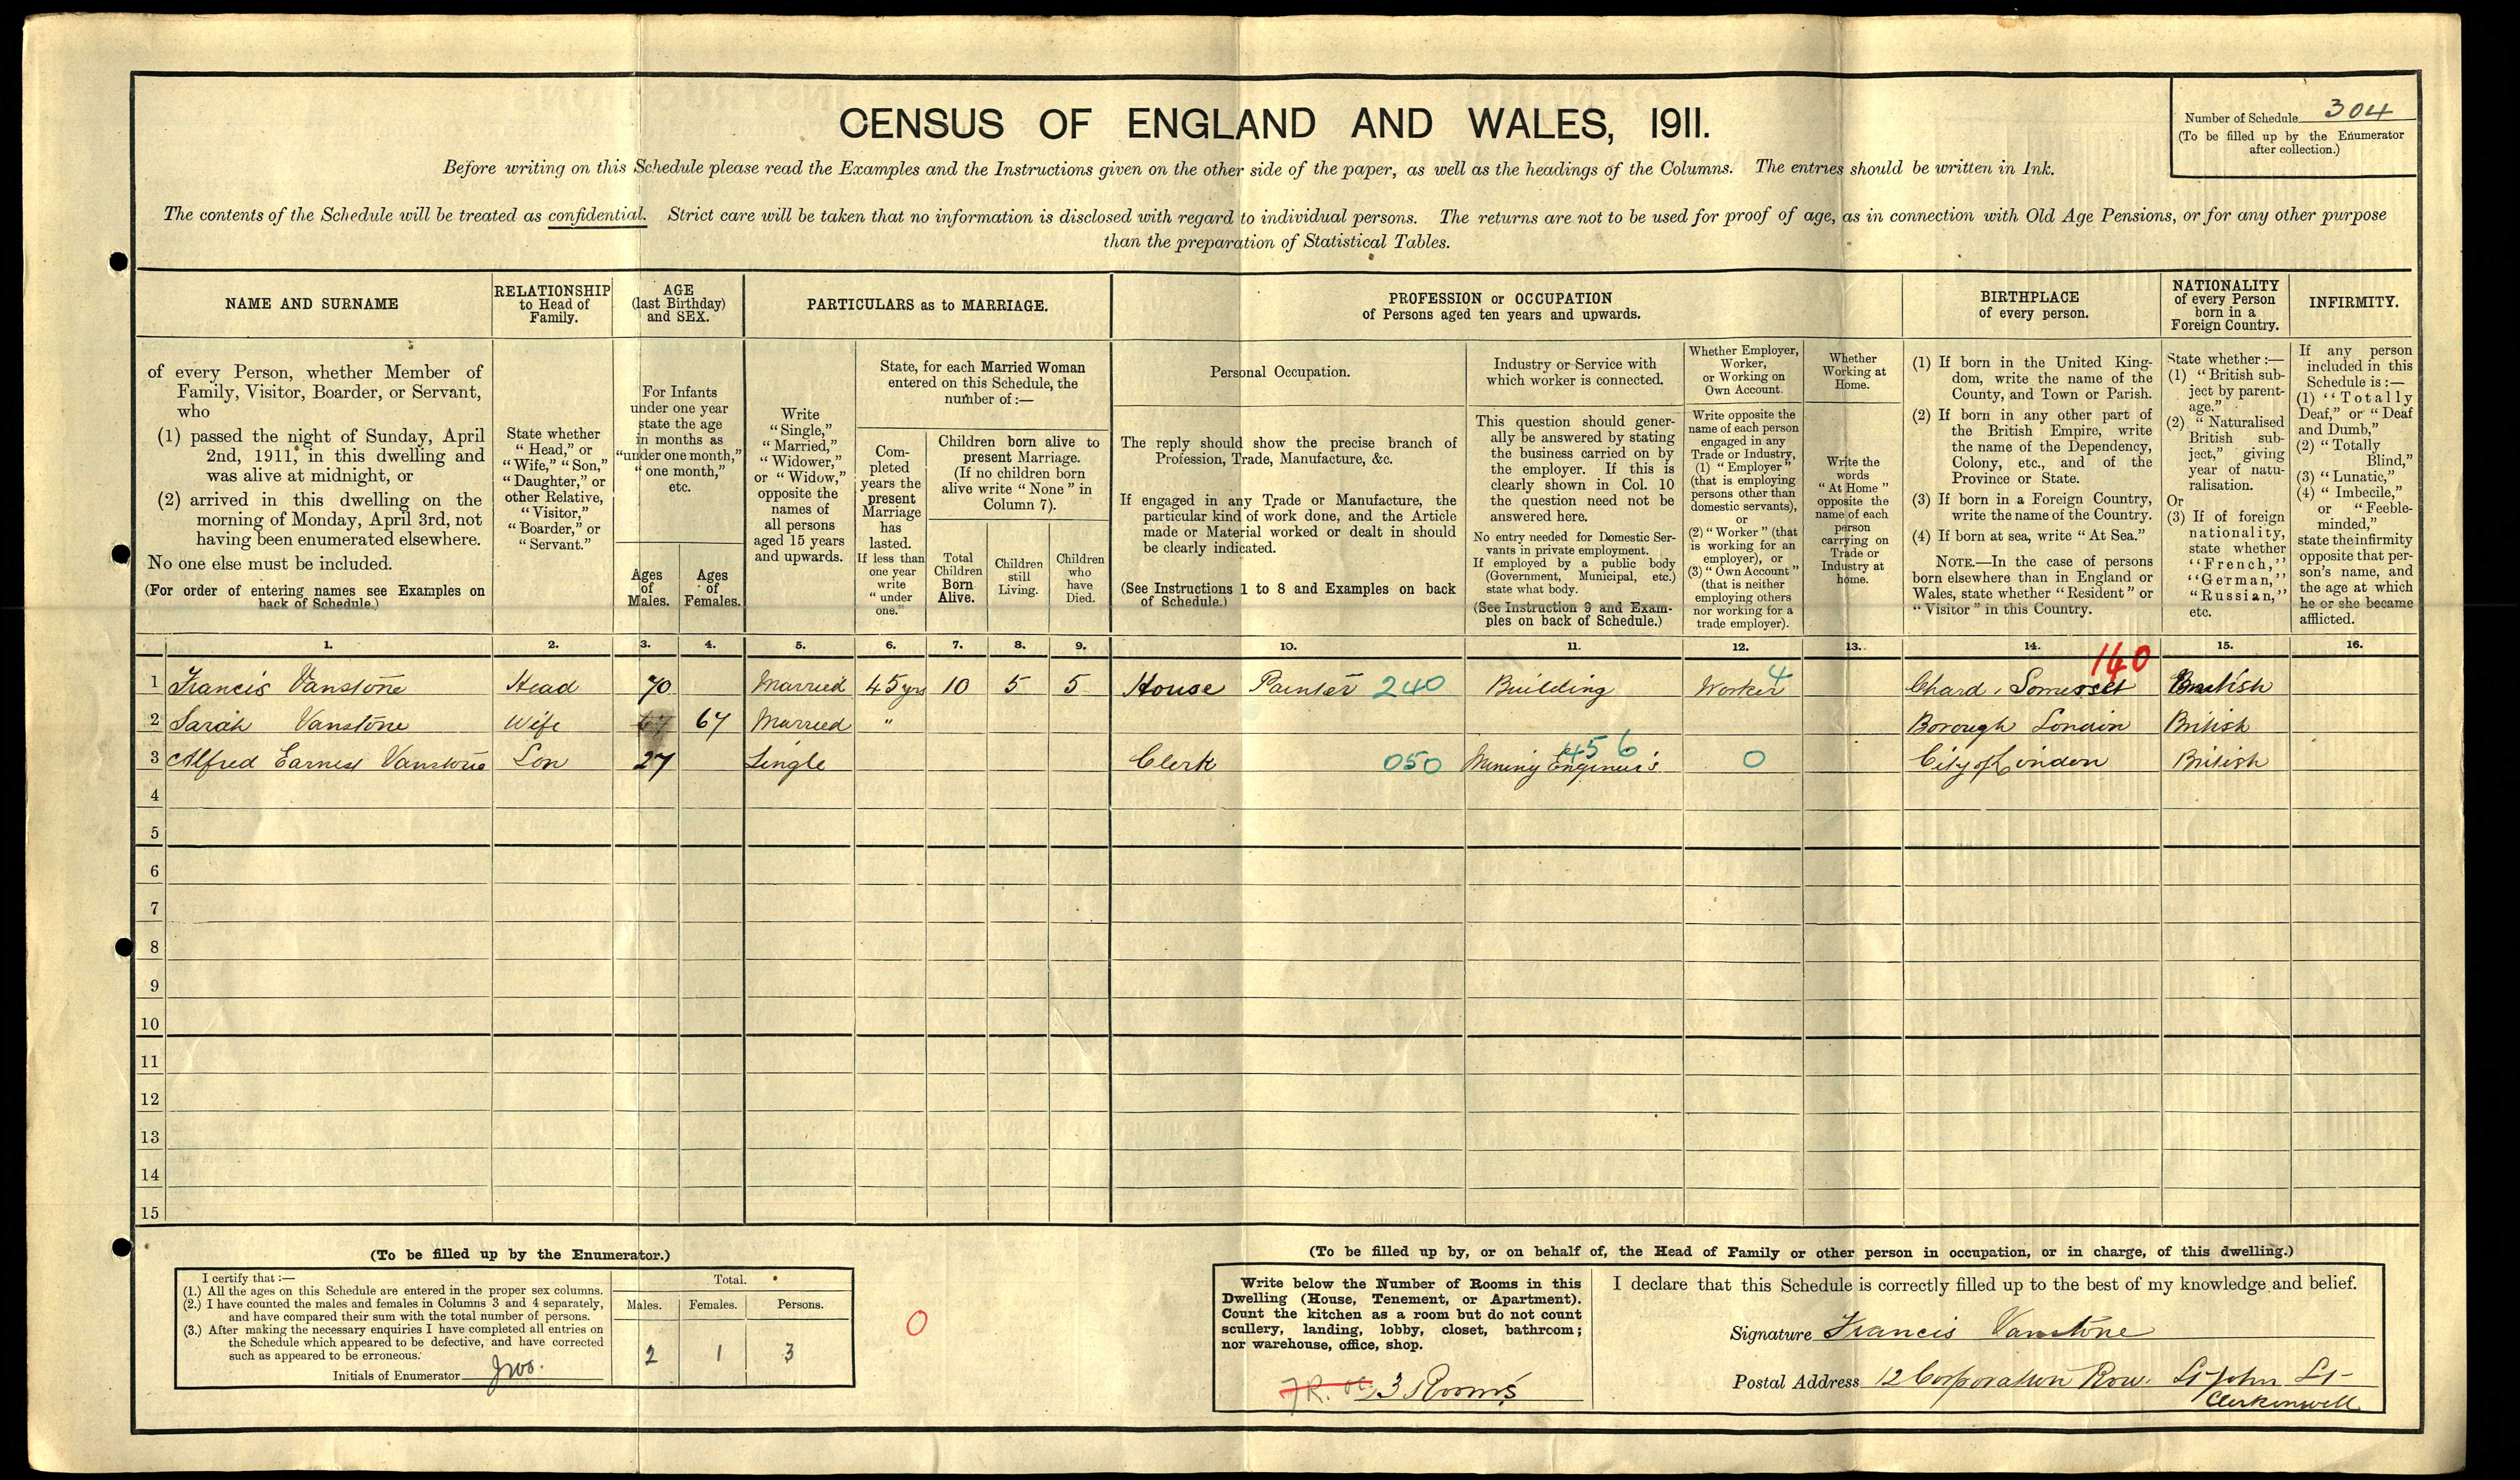 CENSUS OF ENGLAND AND WALES, 1911.
Number of Schedule 304
(To be filled up by the Enumerator
after collection.)
Before writing on this Schedule please read the Examples and the Instructions given on the other side of the paper, as well as the headings of the Columns. The entries should be written in Ink.
The contents of the Schedule will be treated as confidential. Strict care will be taken that no information is disclosed with regard to individual persons. The returns are not to be used for proof of age, as in connection with Old Age Pensions, or for any other purpose
than the preparation of Statistical Tables.
NAME AND SURNAME
RELATIONSHIP
to Head of
Family.
AGE
(last Birthday)
and SEX.
PARTICULARS as to MARRIAGE.
PROFESSION or OCCUPATION
of Persons aged ten years and upwards.
BIRTHPLACE
of every person.
NATIONALITY
of every Person
born in a
Foreign Country.
INFIRMITY.
of every Person, whether Member of
Family, Visitor, Boarder, or Servant,
who
(1) passed the night of Sunday, April
2nd, 1911, in this dwelling and
was alive at midnight, or
(2) arrived in this dwelling on the
morning of Monday, April 3rd, not
having been enumerated elsewhere.
No one else must be included.
(For order of entering names see Examples on
back of Schedule.)
State whether
"Head," or
"Wife," "Son,"
"Daughter," or
other Relative,
"Visitor,"
"Boarder," or
"Servant."
For Infants
under one year
state the age
in months as
"under one month,"
"one month,"
etc.
Ages
of
Males.
Ages
of
Females.
Write
"Single,"
"Married,"
"Widower,"
or "Widow,"
opposite the
names of
all persons
aged 15 years
and upwards.
State, for each Married Woman
entered on this Schedule, the
number of:—
Com-
pleted
years the
present
Marriage
has
lasted.
If less than
one year
write
"under
one."
Children born alive to
present Marriage.
(If no children born
alive write "None" in
Column 7).
Total
Children
Born
Alive.
Children
still
Living.
Children
who
have
Died.
Personal Occupation.
The reply should show the precise branch of
Profession, Trade, Manufacture, &c.
If engaged in any Trade or Manufacture, the
particular kind of work done, and the Article
made or Material worked or dealt in should
be clearly indicated.
(See Instructions 1 to 8 and Examples on back
of Schedule.)
Industry or Service with
which worker is connected.
This question should gener-
ally be answered by stating
the business carried on by
the employer. If this is
clearly shown in Col. 10
the question need not be
answered here.
No entry needed for Domestic Ser-
vants in private employment.
If employed by a public body
(Government, Municipal, etc.)
state what body.
(See Instruction 9 and Exam-
ples on back of Schedule.)
Whether Employer,
Worker,
or Working on
Own Account.
Write opposite the
name of each person
engaged in any
Trade or Industry,
(1) "Employer"
(that is employing
persons other than
domestic servants),
or
(2) "Worker" (that
is working for an
employer), or
(3) "Own Account"
(that is neither
employing others
nor working for a
trade employer).
Whether
Working at
Home.
Write the
words
"At Home"
opposite the
name of each
person
carrying on
Trade or
Industry at
home.
(1) If born in the United King-
dom, write the name of the
County, and Town or Parish.
(2) If born in any other part of
the British Empire, write
the name of the Dependency,
Colony, etc., and of the
Province or State.
(3) If born in a Foreign Country,
write the name of the Country.
(4) If born at sea, write "At Sea."
NOTE.—In the case of persons
born elsewhere than in England or
Wales, state whether "Resident" or
"Visitor" in this Country.
State whether:—
(1) "British sub-
ject by parent-
age."
(2) "Naturalised
British sub-
ject," giving
year of natu-
ralisation.
Or
(3) If of foreign
nationality,
state whether
"French,"
"German,"
"Russian,"
etc.
If any person
included in this
Schedule is:—
(1) "Totally
Deaf," or "Deaf
and Dumb,"
(2) "Totally
Blind,"
(3) "Lunatic,"
(4) "Imbecile,"
or "Feeble-
minded,"
state the infirmity
opposite that per-
son's name, and
the age at which
he or she became
afflicted.
1. 2. 3. 4. 5. 6. 7. 8. 9. 10. 11. 12. 13. 14. 15. 16.
140
1 Francis Vanstone Head 70 Married 45 yrs 10 5 5 House Painter 240 Building Worker 4 Chard, Somerset British
2 Sarah Vanstone Wife 67 Married " Borough London British
3 Alfred Earnest Vanstone Son 27 Single Clerk 050 Mining Engineer's 456 0 City of London British
4
5
6
7
8
9
10
11
12
13
14
15
(To be filled up by the Enumerator.)
I certify that:—
(1.) All the ages on this Schedule are entered in the proper sex columns.
(2.) I have counted the males and females in Columns 3 and 4 separately,
and have compared their sum with the total number of persons.
(3.) After making the necessary enquiries I have completed all entries on
the Schedule which appeared to be defective, and have corrected
such as appeared to be erroneous.
Initials of Enumerator
Total.
Males. Females. Persons.
2 1 3
0
(To be filled up by, or on behalf of, the Head of Family or other person in occupation, or in charge, of this dwelling.)
Write below the Number of Rooms in this
Dwelling (House, Tenement, or Apartment).
Count the kitchen as a room but do not count
scullery, landing, lobby, closet, bathroom;
nor warehouse, office, shop.
3 Rooms
I declare that this Schedule is correctly filled up to the best of my knowledge and belief.
Signature Francis Vanstone
Postal Address 12 Corporation Row. St John St
Clerkenwell